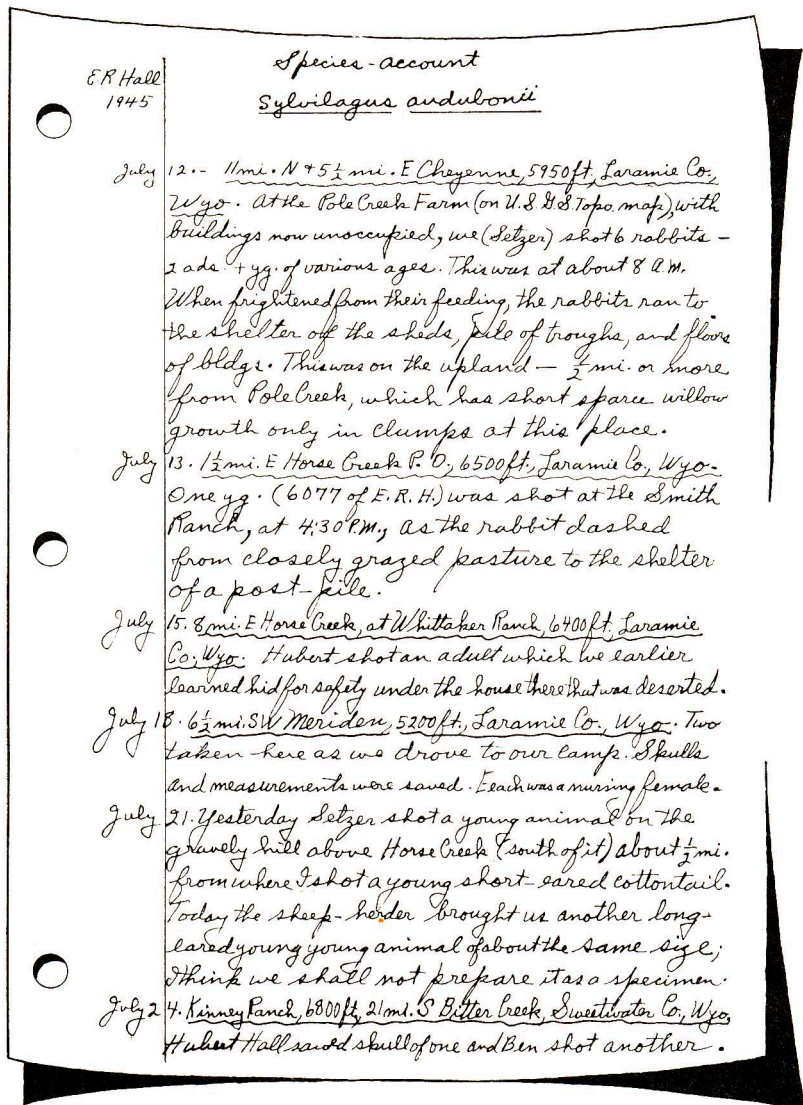 Species-account
E R Hall
1945
Sylvilagus audubonii
July 12.- 11 mi. N + 5½ mi. E Cheyenne, 5950 ft., Laramie Co.,
Wyo. At the Pole Creek Farm (on U.S.G.S. Topo. map), with
buildings now unoccupied, we (Setzer) shot 6 rabbits –
2 ads. + yg. of various ages. This was at about 8 A.M.
When frightened from their feeding, the rabbits ran to
the shelter of the sheds, pile of troughs, and floors
of bldgs. This was on the upland — ½ mi. or more
from Pole Creek, which has short sparce willow
growth only in clumps at this place.
July 13. 1½ mi. E Horse Creek P.O., 6500 ft., Laramie Co., Wyo.
One yg. (6077 of E.R.H.) was shot at the Smith
Ranch, at 4:30 P.M., as the rabbit dashed
from closely grazed pasture to the shelter
of a post-pile.
July 15. 8 mi. E Horse Creek, at Whittaker Ranch, 6400 ft., Laramie
Co., Wyo. Hubert shot an adult which we earlier
learned hid for safety under the house there that was deserted.
July 18. 6½ mi. SW Meriden, 5200 ft., Laramie Co., Wyo. Two
taken here as we drove to our camp. Skulls
and measurements were saved. Eeach was a nursing female.
July 21. Yesterday Setzer shot a young animal on the
gravely hill above Horse Creek (south of it) about ½ mi.
from where I shot a young short-eared cottontail.
Today the sheep-herder brought us another long-
eared young young animal of about the same size;
I think we shall not prepare it as a specimen.
July 24. Kinney Ranch, 6800 ft, 21 mi. S Bitter Creek, Sweetwater Co., Wyo.
Hubert Hall saved skull of one and Ben shot another.